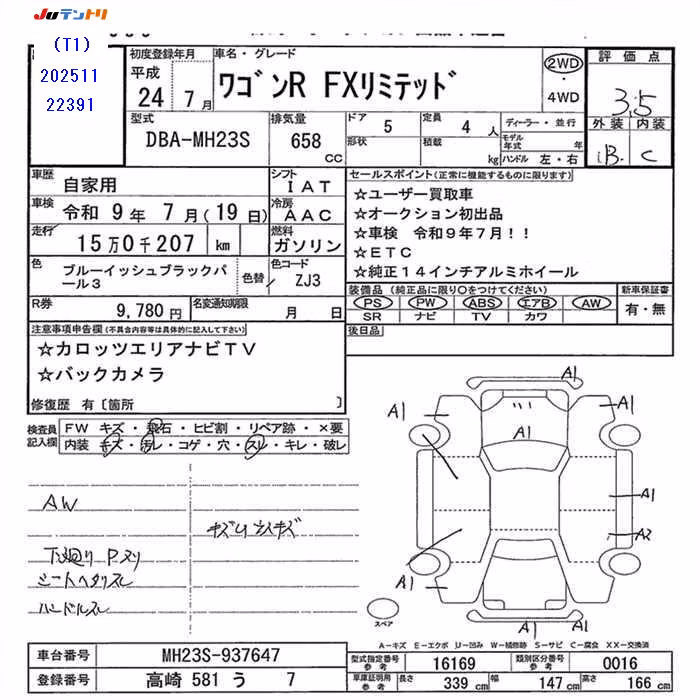 JUテントリ
(T1)
202511
22391
初度登録年月
平成
24 7月
車名・グレード
ワゴンR FXリミテッド
2WD
・
4WD
評価点
3.5
外装 内装
B C
型式
DBA-MH23S
排気量
658
CC
ドア 5
形状
定員 4 人
積載 kg
ディーラー・並行
モデル年式 年
ハンドル 左・右
車歴 自家用
シフト IAT
車検 令和 9年 7月(19日)
冷房 AAC
走行 15万0千207 km
燃料 ガソリン
色 ブルーイッシュブラックパール3
色替
色コード ZJ3
R券 9,780円
名変通知期限 月 日
セールスポイント(正常に機能するものに限ります)
☆ユーザー買取車
☆オークション初出品
☆車検 令和9年7月!!
☆ETC
☆純正14インチアルミホイール
装備品(純正品に限り○をつけてください)
PS PW ABS エアB AW
SR ナビ TV カワ
新車保証書
有・無
後日品
注意事項申告欄(不具合内容等は具体的に記入して下さい)
☆カロッツエリアナビTV
☆バックカメラ
修復歴 有〔箇所 〕
検査員記入欄
FW キズ・飛石・ヒビ割・リペア跡・×要
内装 キズ・汚レ・コゲ・穴・スレ・キレ・破レ
AW
キズUエスキズ
下廻り Pヌリ
シートヘタリスレ
ハンドルスレ
A1
A1
A1
A1
A1
A1
A2
A1
A1
A1
スペア
A-キズ E-エクボ U-凹み W-補修跡 S-サビ C-腐食 XX-交換済
車台番号 MH23S-937647
登録番号 高崎 581 う 7
型式指定番号 参考 16169
類別区分番号 参考 0016
車庫証明用 参考 長さ 339 cm 幅 147 cm 高さ 166 cm